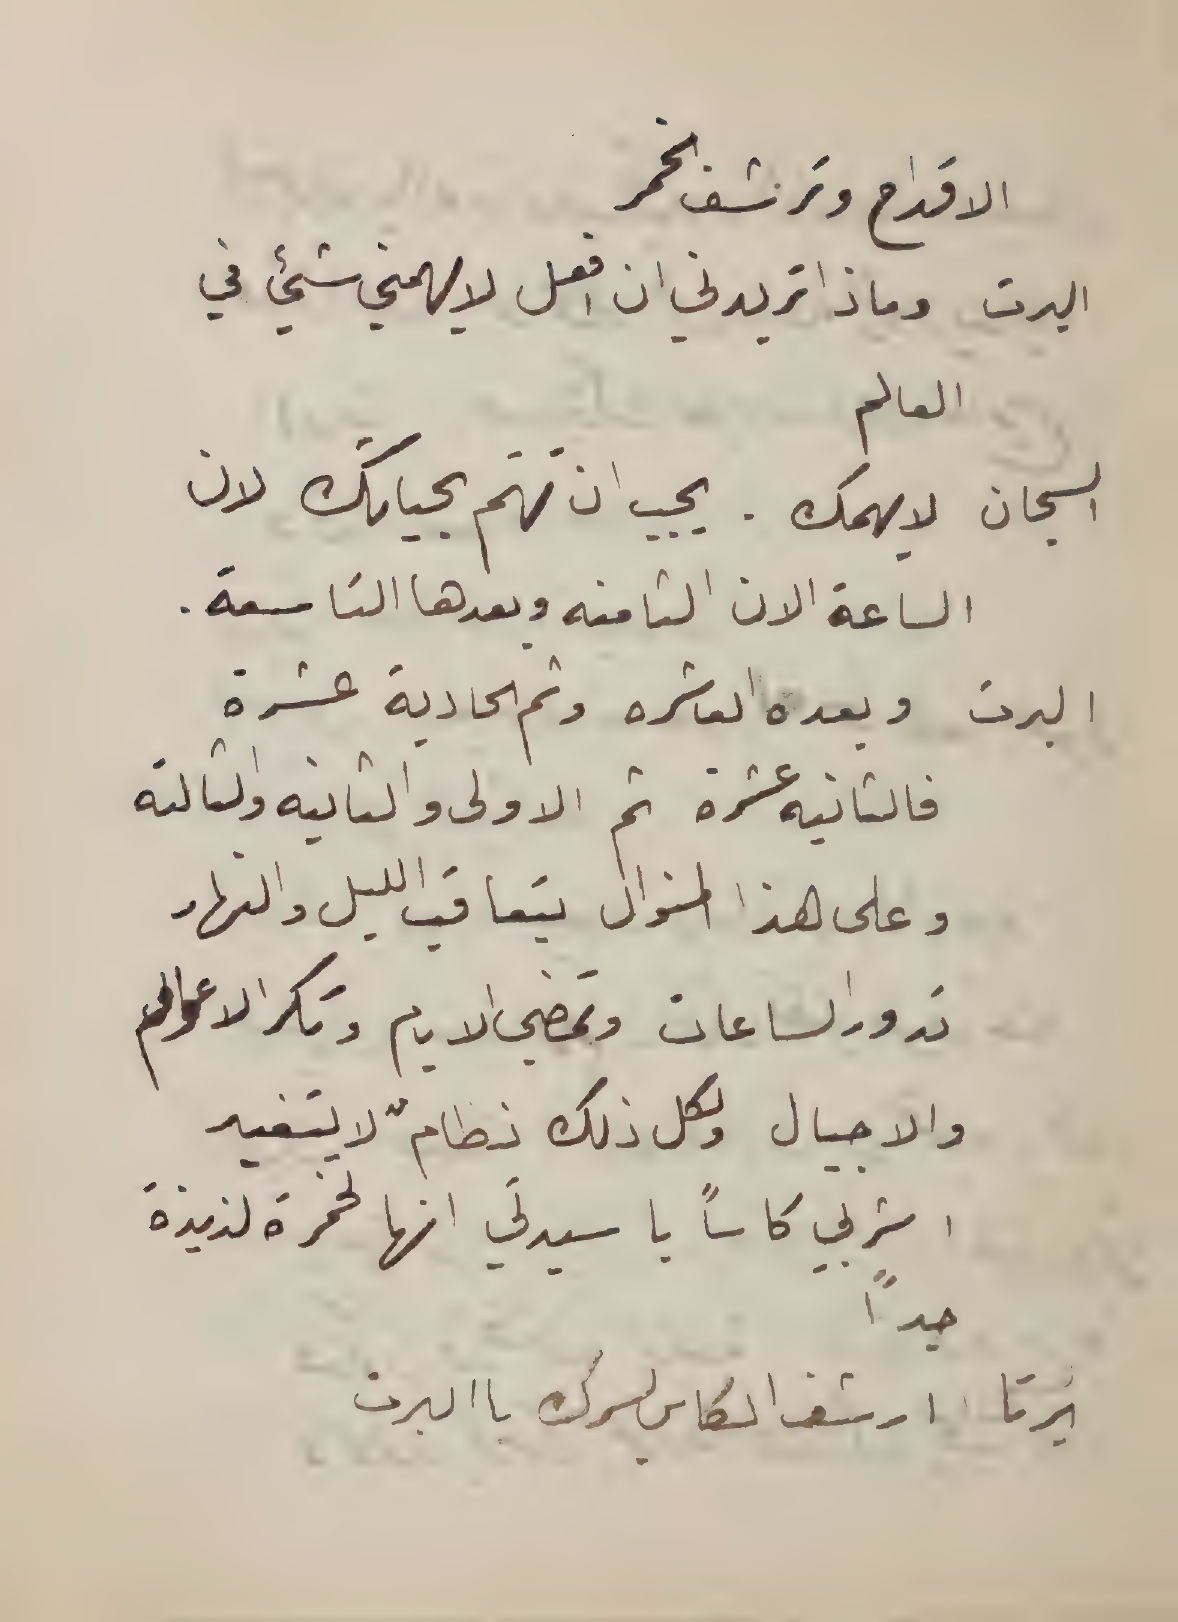 الاقداح وترتشف الخمر
البرت وماذا تريدني ان افعل لايهمني شيئ في
العالم
السجان لايهمك . يجب ان تهتم بحياتك لان
الساعة الان الثامنه وبعدها التاسعة .
البرت وبعده العاشره وثم الحادية عشرة
فالثانيه عشرة ثم الاولى والثانيه والثالثه
وعلى هذا المنوال يتعاقب الليل والنهار
تدور الساعات وتمضي الايام وتكر الاعوام
والاجيال ولكل ذلك نظام لايتغير
اشربي كاساً يا سيدتي انها لخمرة لذيذة
جداً
ارشف الكاس لسرك يا البرت